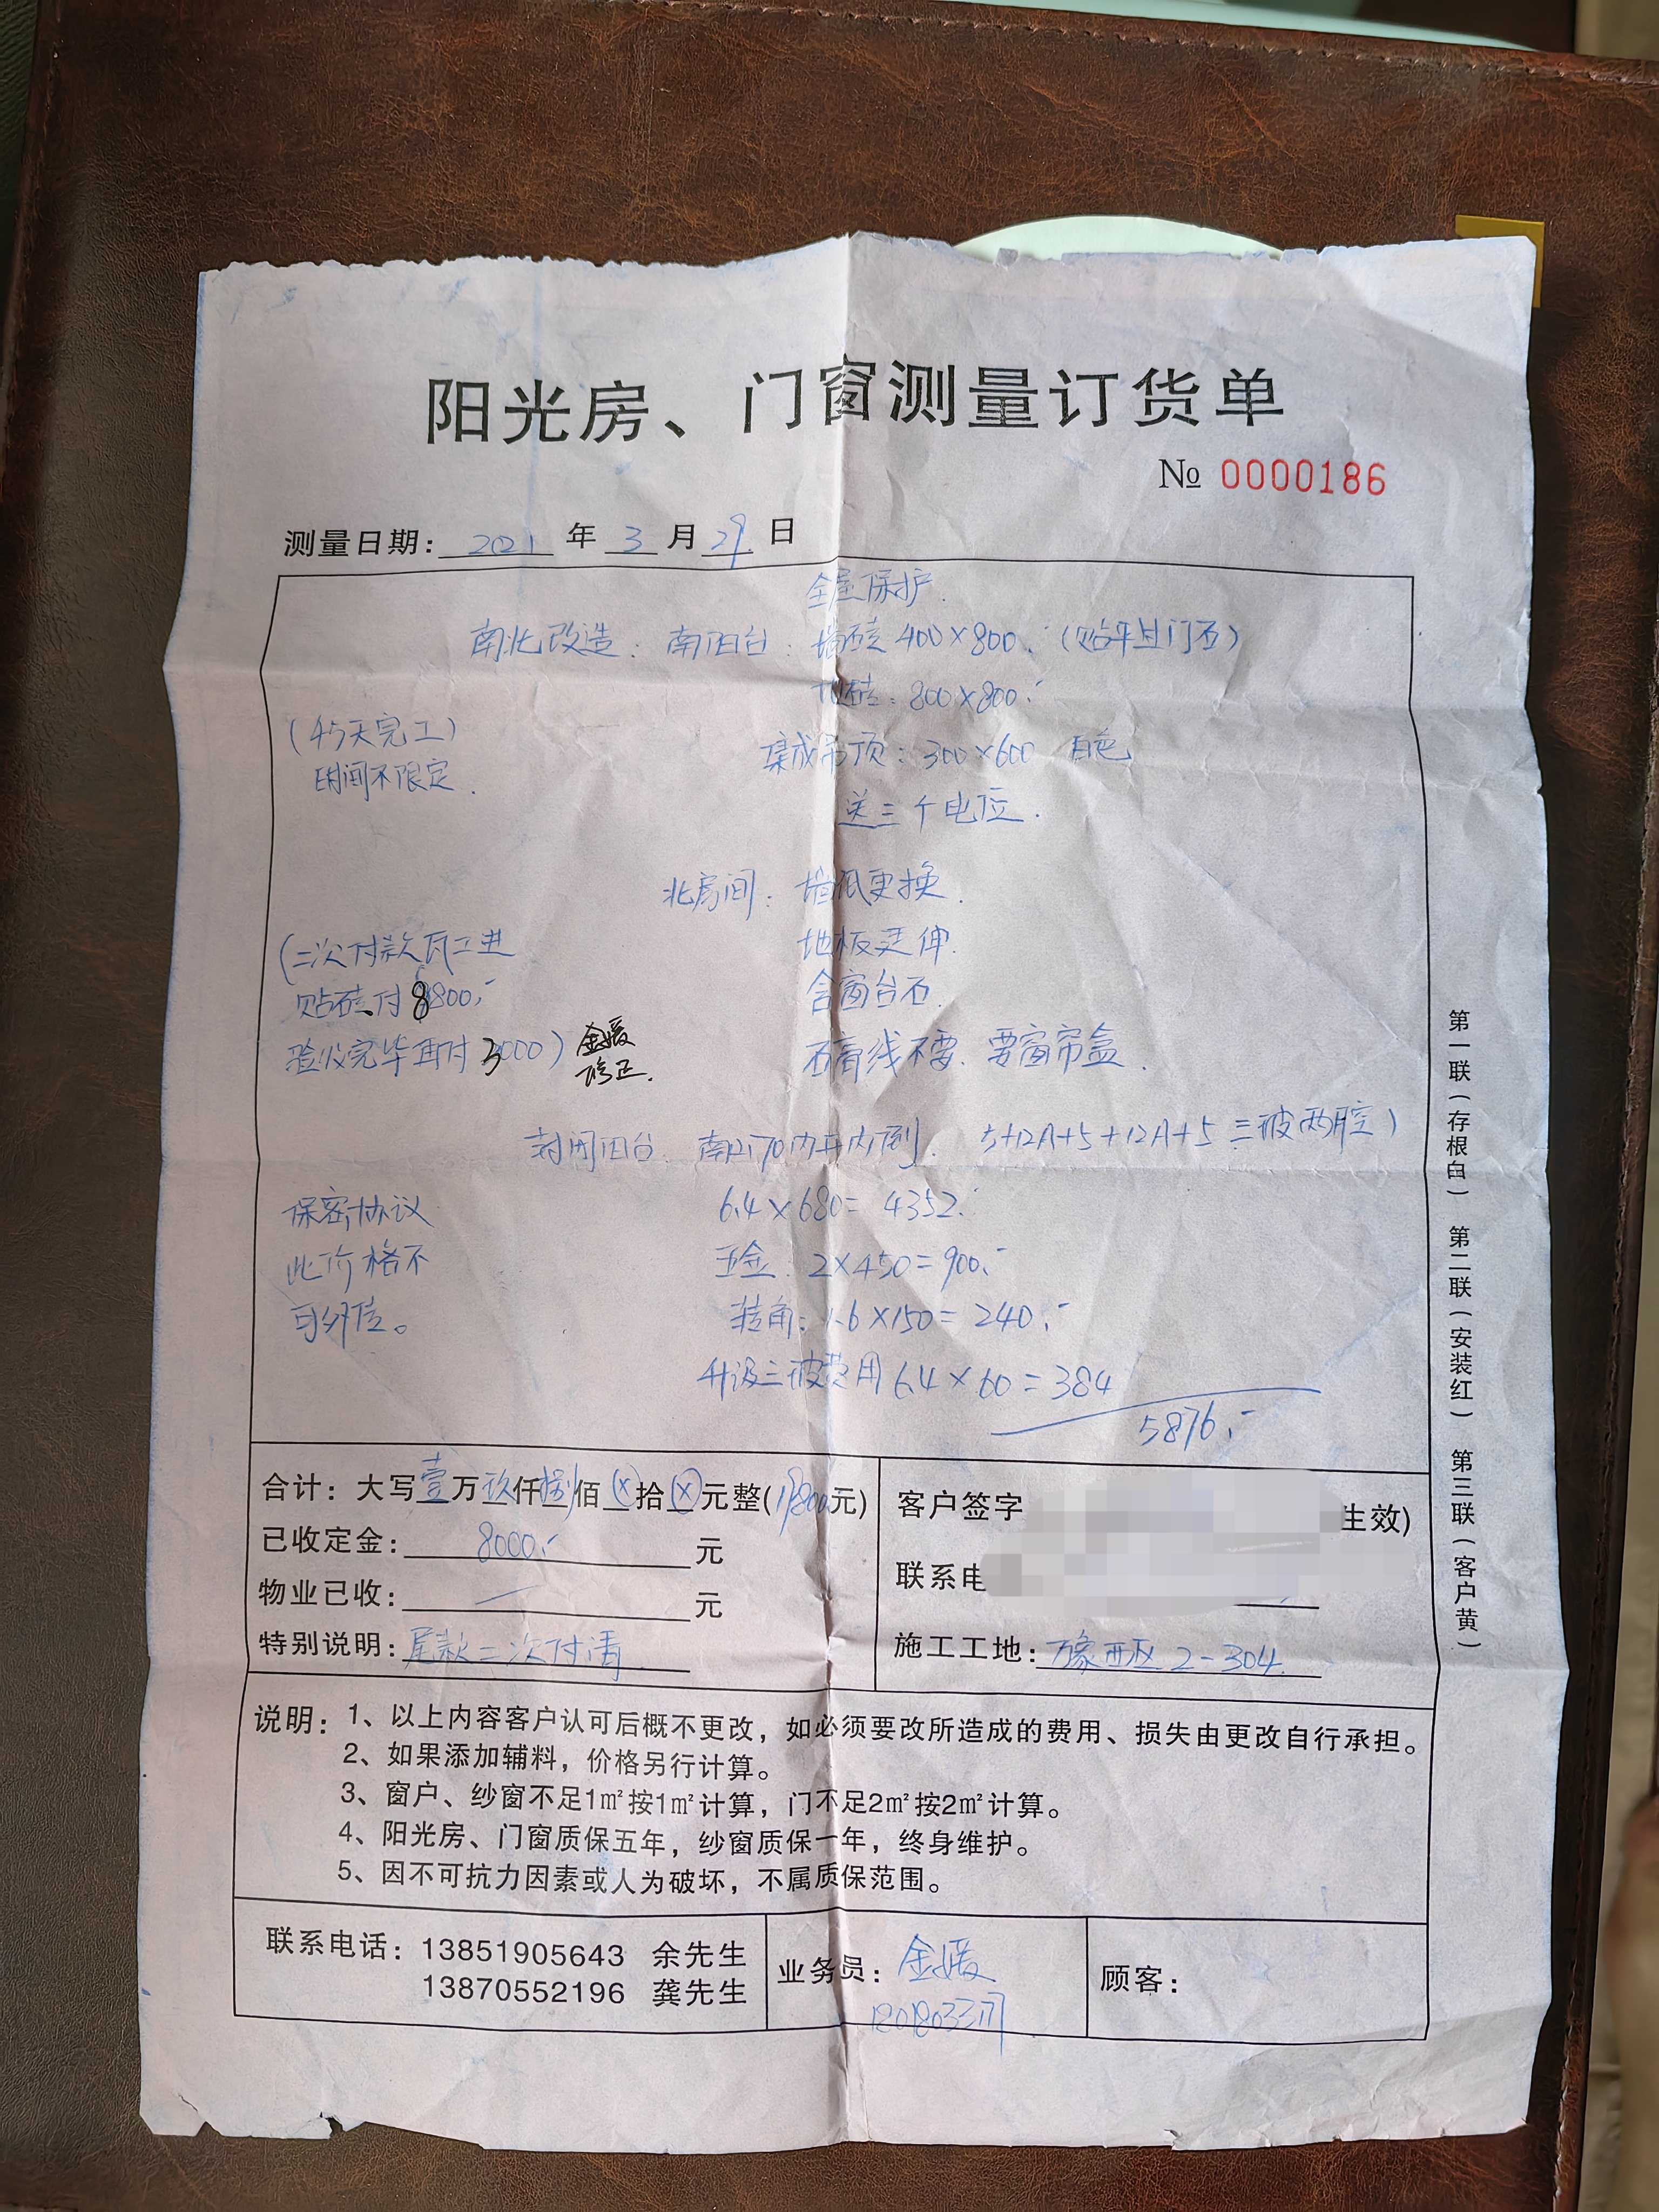 阳光房、门窗测量订货单
№ 0000186
测量日期: 2021 年 3 月 29 日
全屋保护.
南北改造: 南阳台: 墙砖 400×800. (贴平过门石)
地砖: 800×800.
(45天完工)
时间不限定.
集成吊顶: 300×600 白色
送三个电位.
北房间: 墙纸更换.
地板延伸.
含窗台石.
石膏线不要. 要窗帘盒.
(二次付款瓦工进
贴砖付8800.-
验收完毕再付3000) 金媛
修正.
封闭阳台 南22170内开内倒. 5+12A+5+12A+5 三玻两腔)
6.4×680=4352.-
五金. 2×450=900.-
转角: 1.6×150=240.-
升级三玻费用 6.4×60=384
5876.-
保密协议
此价格不
可外传。
合计: 大写壹万玖仟捌佰⊗拾⊗元整(19800元)
已收定金: 8000.- 元
物业已收: — 元
特别说明: 尾款二次付清
客户签字 生效)
联系电
施工工地: 万象西区 2-304
说明: 1、以上内容客户认可后概不更改，如必须要改所造成的费用、损失由更改自行承担。
2、如果添加辅料，价格另行计算。
3、窗户、纱窗不足1㎡按1㎡计算，门不足2㎡按2㎡计算。
4、阳光房、门窗质保五年，纱窗质保一年，终身维护。
5、因不可抗力因素或人为破坏，不属质保范围。
联系电话: 13851905643 余先生
13870552196 龚先生
业务员: 金媛
顾客:
第一联(存根白) 第二联(安装红) 第三联(客户黄)